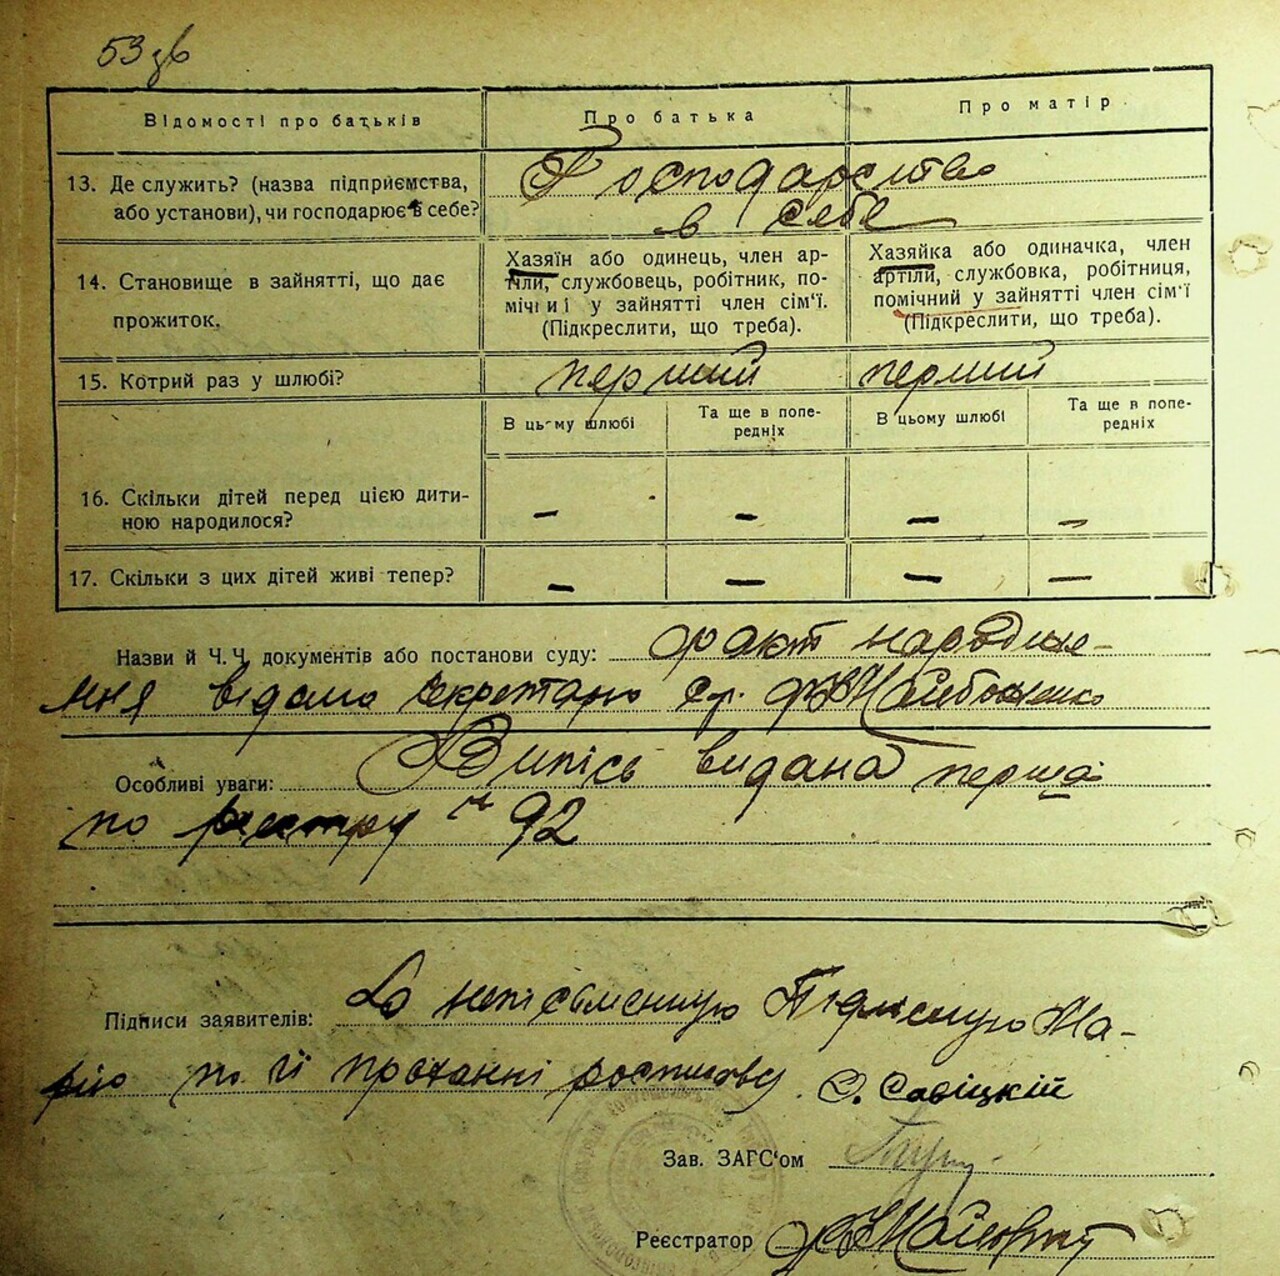 53 зв
Відомості про батьків
Про батька
Про матір
13. Де служить? (назва підприємства, або установи), чи господарює в себе?
Господарство
в себе
14. Становище в зайнятті, що дає прожиток.
Хазяїн або одинець, член ар-
тіли, службовець, робітник, по-
мічний у зайнятті член сім'ї.
(Підкреслити, що треба).
Хазяйка або одиначка, член
артіли, службовка, робітниця,
помічний у зайнятті член сім'ї
(Підкреслити, що треба).
15. Котрий раз у шлюбі?
перший
перший
В цьому шлюбі
Та ще в попе-
редніх
В цьому шлюбі
Та ще в попе-
редніх
16. Скільки дітей перед цією дити-
ною народилося?
— — — —
17. Скільки з цих дітей живі тепер?
— — — —
Назви й Ч.Ч. документів або постанови суду: факт народже-
ння відомо секретарю с/р.
Особливі уваги: Випісь видана перша
по реєстру № 92
Підписи заявителів: За неписьменную Марію
по її проханні росписався. Савіцкій
Зав. ЗАГС'ом
Реєстратор